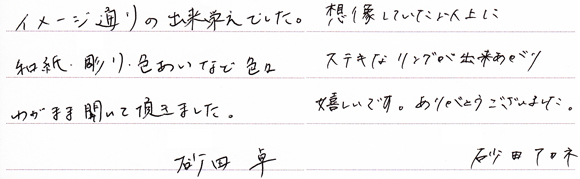 イメージ通りの出来栄えでした。
和紙・彫り・色あいなど色々
わがまま聞いて頂きました。
砂田 卓
想像していた以上に
ステキなリングが出来あがり
嬉しいです。ありがとうございました。
砂田アロネ